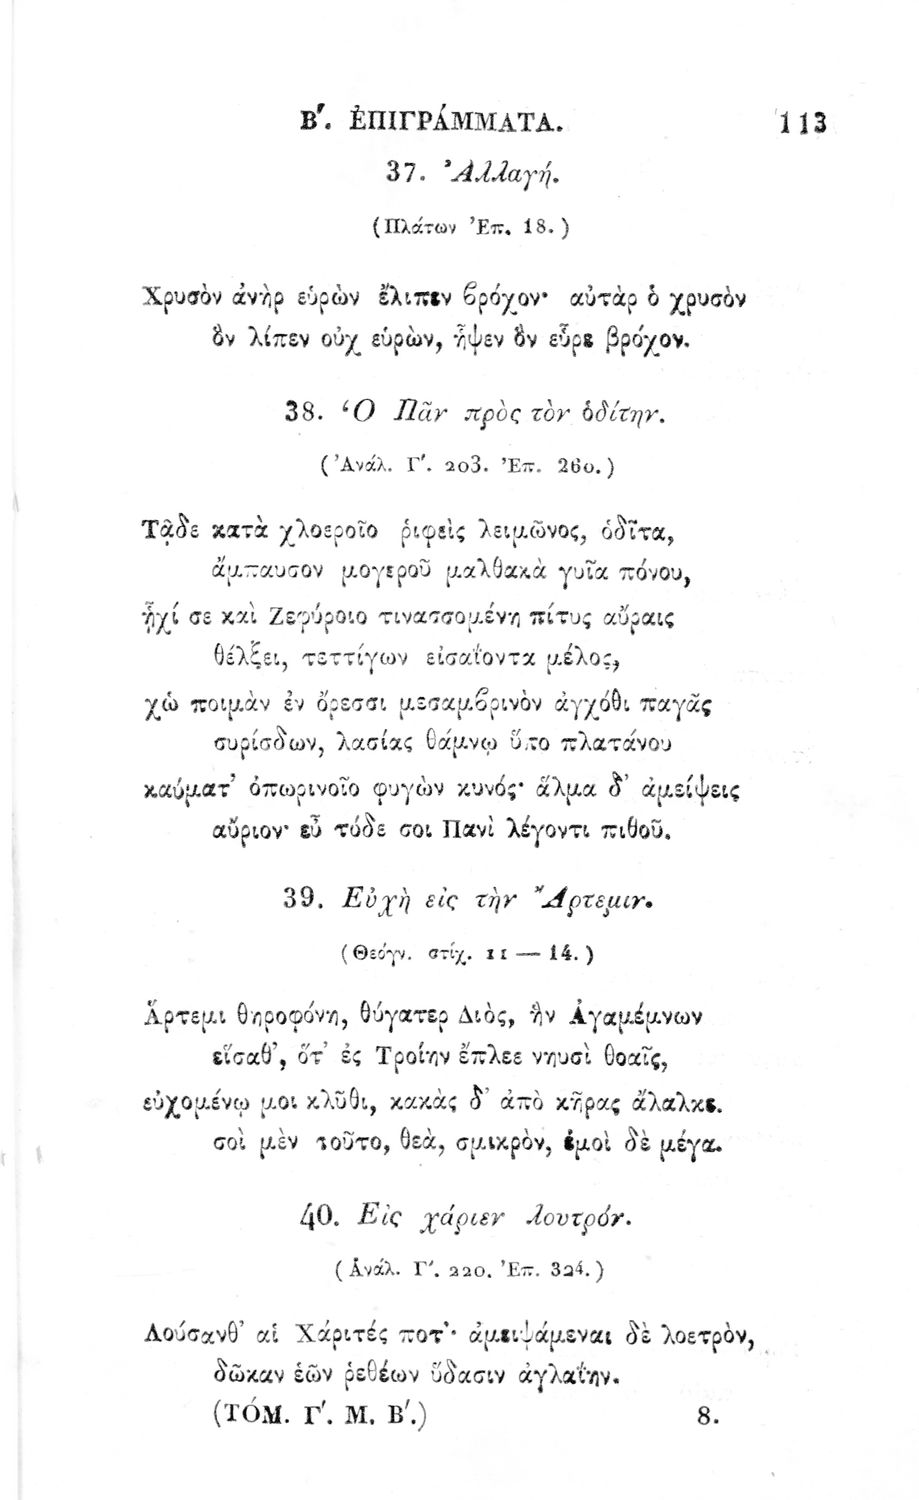 Β΄. ἘΠΙΓΡΆΜΜΑΤΑ. 113
37. Ἀλλαγή.
(Πλάτων Ἐπ. 18.)
Χρυσὸν ἀνὴρ εὑρὼν ἔλιπεν ϐρόχον· αὐτὰρ ὁ χρυσὸν
ὃν λίπεν οὐχ εὑρὼν, ἧψεν ὃν εὗρε βρόχον.
38. Ὁ Πᾶν πρὸς τὸν ὁδίτην.
(Ἀνάλ. Γ΄. 203. Ἐπ. 260.)
Τᾷδε κατὰ χλοεροῖο ῥιφεὶς λειμῶνος, ὁδῖτα,
ἄμπαυσον μογεροῦ μαλθακὰ γυῖα πόνου,
ᾗχί σε καὶ Ζεφύροιο τινασσομένη πίτυς αὔραις
θέλξει, τεττίγων εἰσαΐοντα μέλος,
χὠ ποιμὰν ἐν ὄρεσσι μεσαμϐρινὸν ἀγχόθι παγᾶς
συρίσδων, λασίας θάμνῳ ὕπο πλατάνου
καύματ’ ὀπωρινοῖο φυγὼν κυνός· ἅλμα δ’ ἀμείψεις
αὔριον· εὖ τόδε σοι Πανὶ λέγοντι πιθοῦ.
39. Εὐχὴ εἰς τὴν Ἄρτεμιν.
(Θεόγν. στίχ. 11 — 14.)
Ἄρτεμι θηροφόνη, θύγατερ Διὸς, ἣν Ἀγαμέμνων
εἵσαθ’, ὅτ’ ἐς Τροίην ἔπλεε νηυσὶ θοαῖς,
εὐχομένῳ μοι κλῦθι, κακὰς δ’ ἀπὸ κῆρας ἄλαλκε.
σοὶ μὲν τοῦτο, θεὰ, σμικρὸν, ἐμοὶ δὲ μέγα.
40. Εἰς χάριεν λουτρόν.
(Ἀνάλ. Γ΄. 220. Ἐπ. 324.)
Λούσανθ’ αἱ Χάριτές ποτ’· ἀμειψάμεναι δὲ λοετρὸν,
δῶκαν ἑῶν ῥεθέων ὕδασιν ἀγλαΐην.
(ΤΌΜ. Γ΄. Μ. Β΄.) 8.